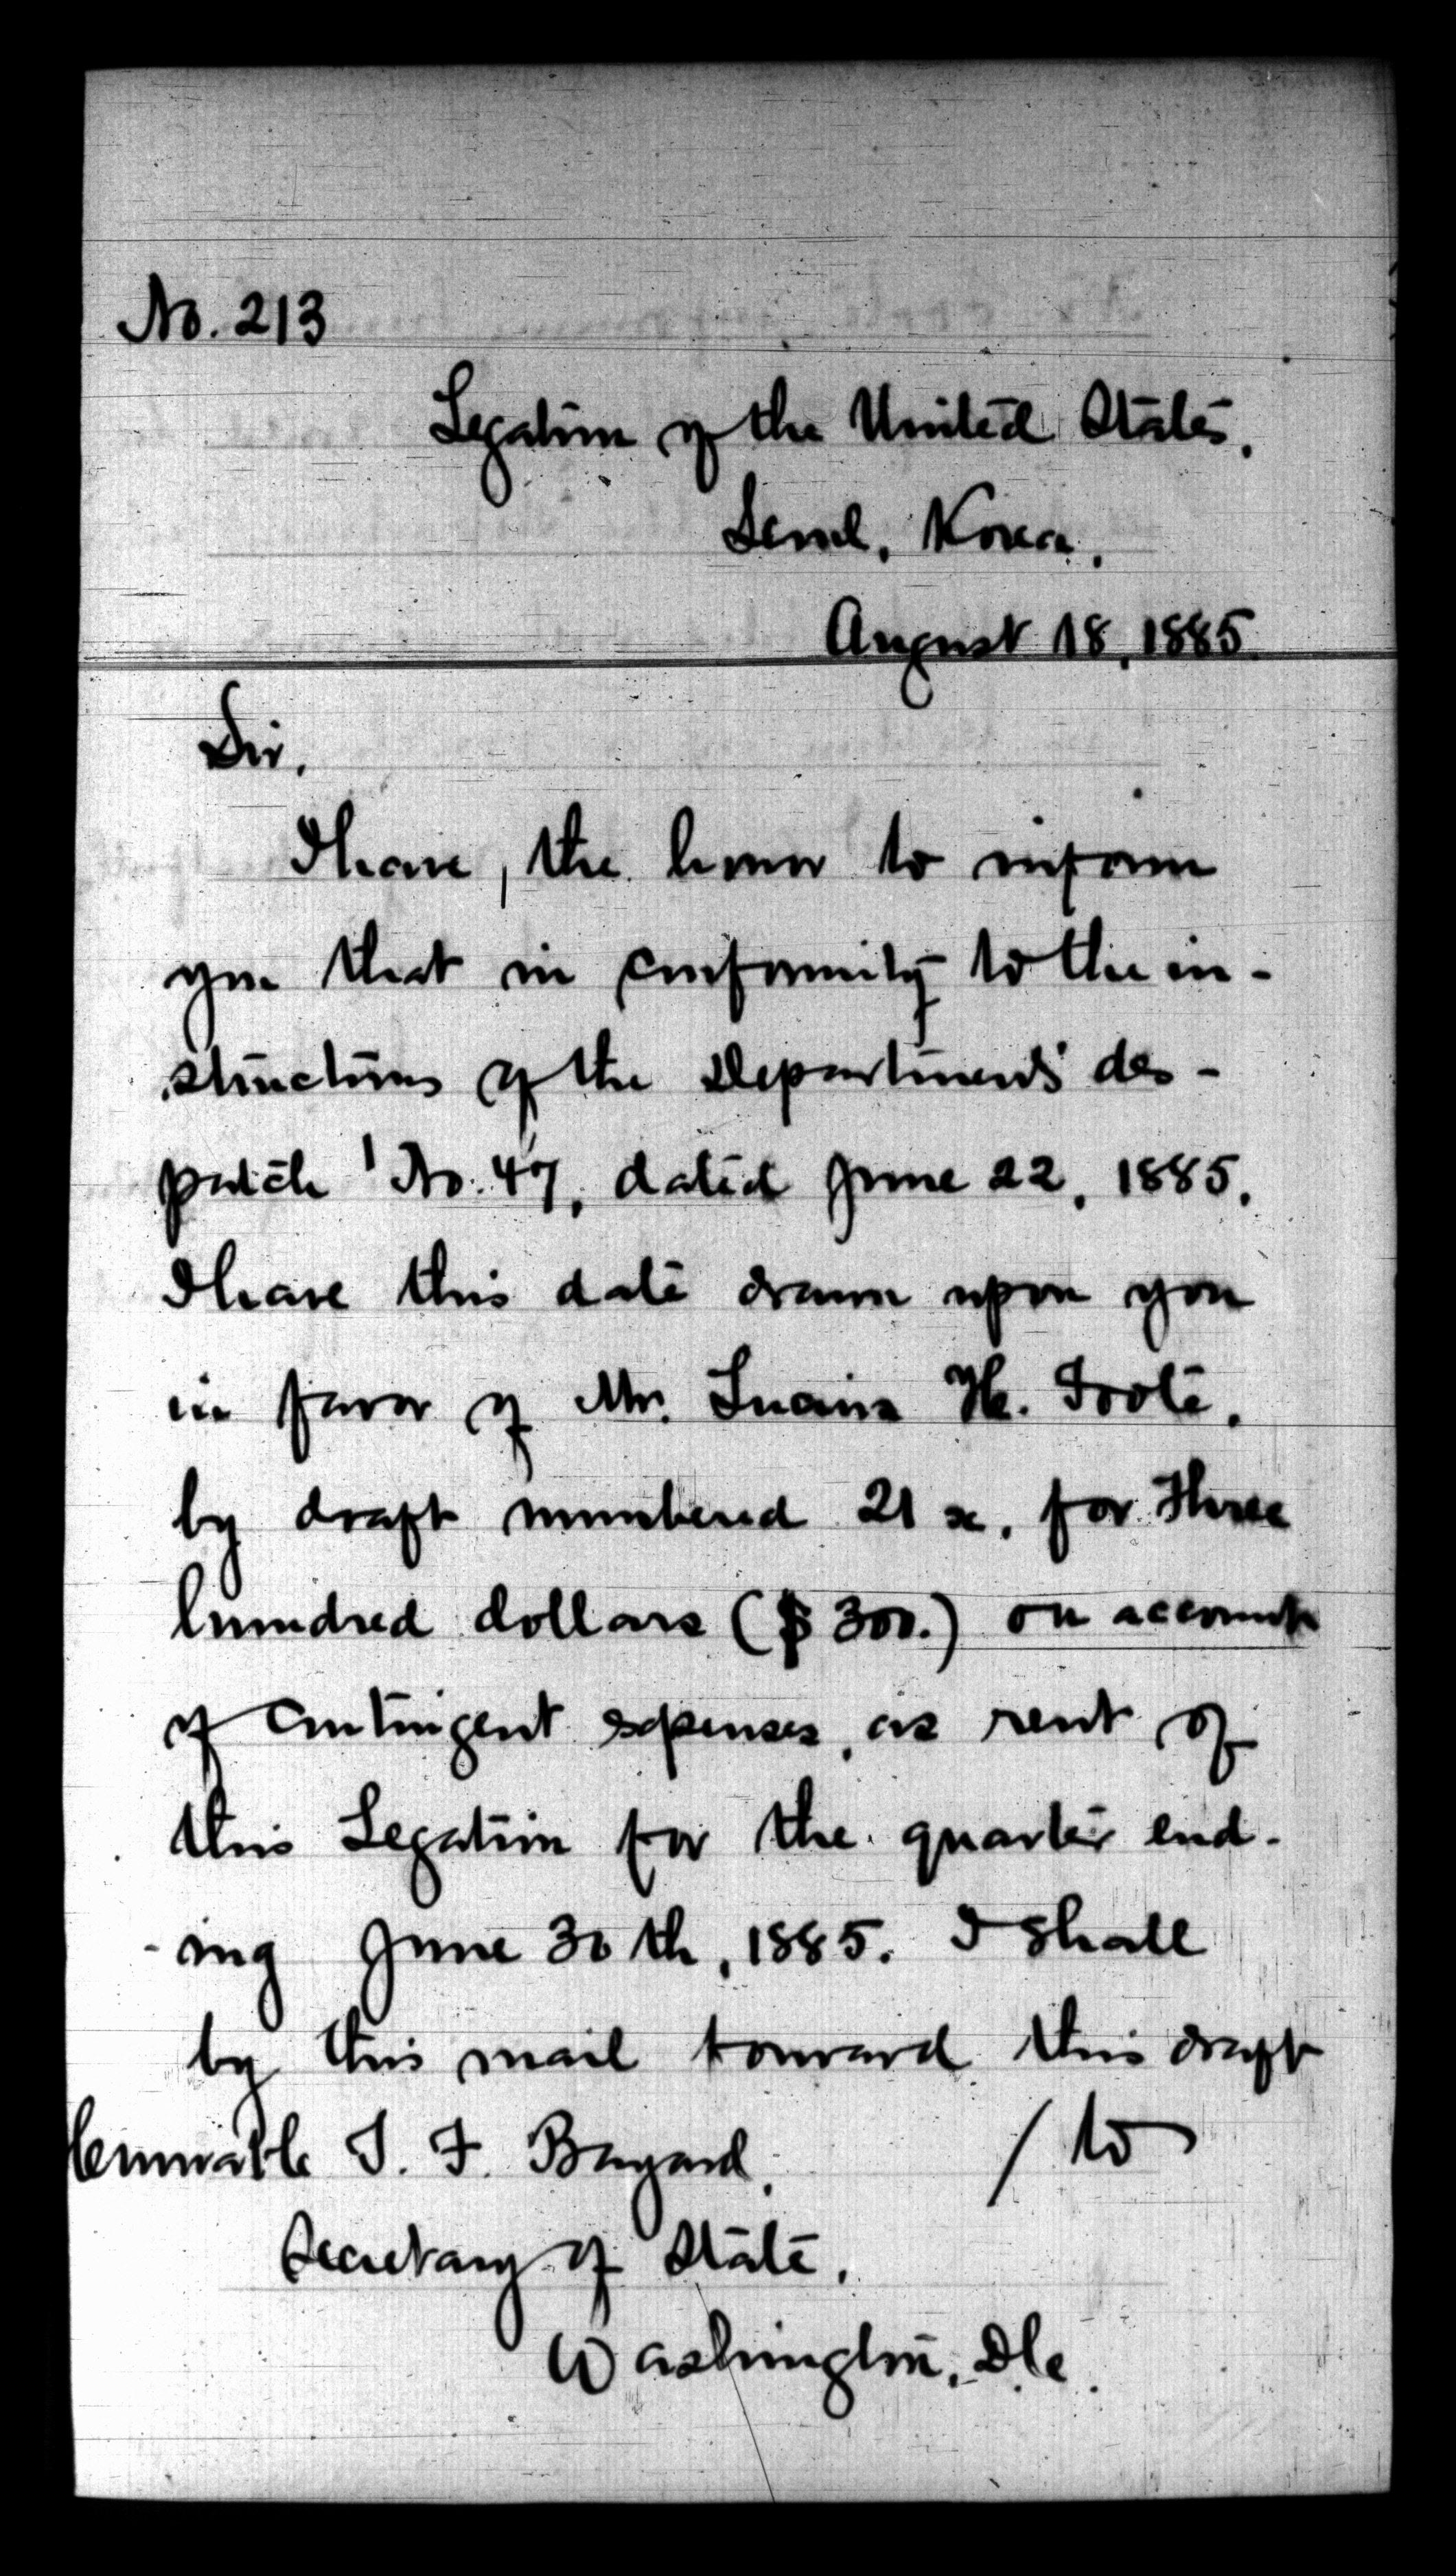 No. 213
Legation of the United States,
Seoul, Korea,
August 18, 1885.
Sir,
I have, the honor to inform
you that in conformity to the in-
structions of the Department's des-
patch No. 47, dated June 22, 1885,
I have this date drawn upon you
in favor of Mr. Lucius H. Foote,
by draft numbered 21 x, for Three
hundred dollars ($300.) on account
of contingent expenses, as rent of
this Legation for the quarter end-
ing June 30th, 1885. I shall
by this mail forward this draft
/ to
Honorable T. F. Bayard,
Secretary of State,
Washington, D.C.